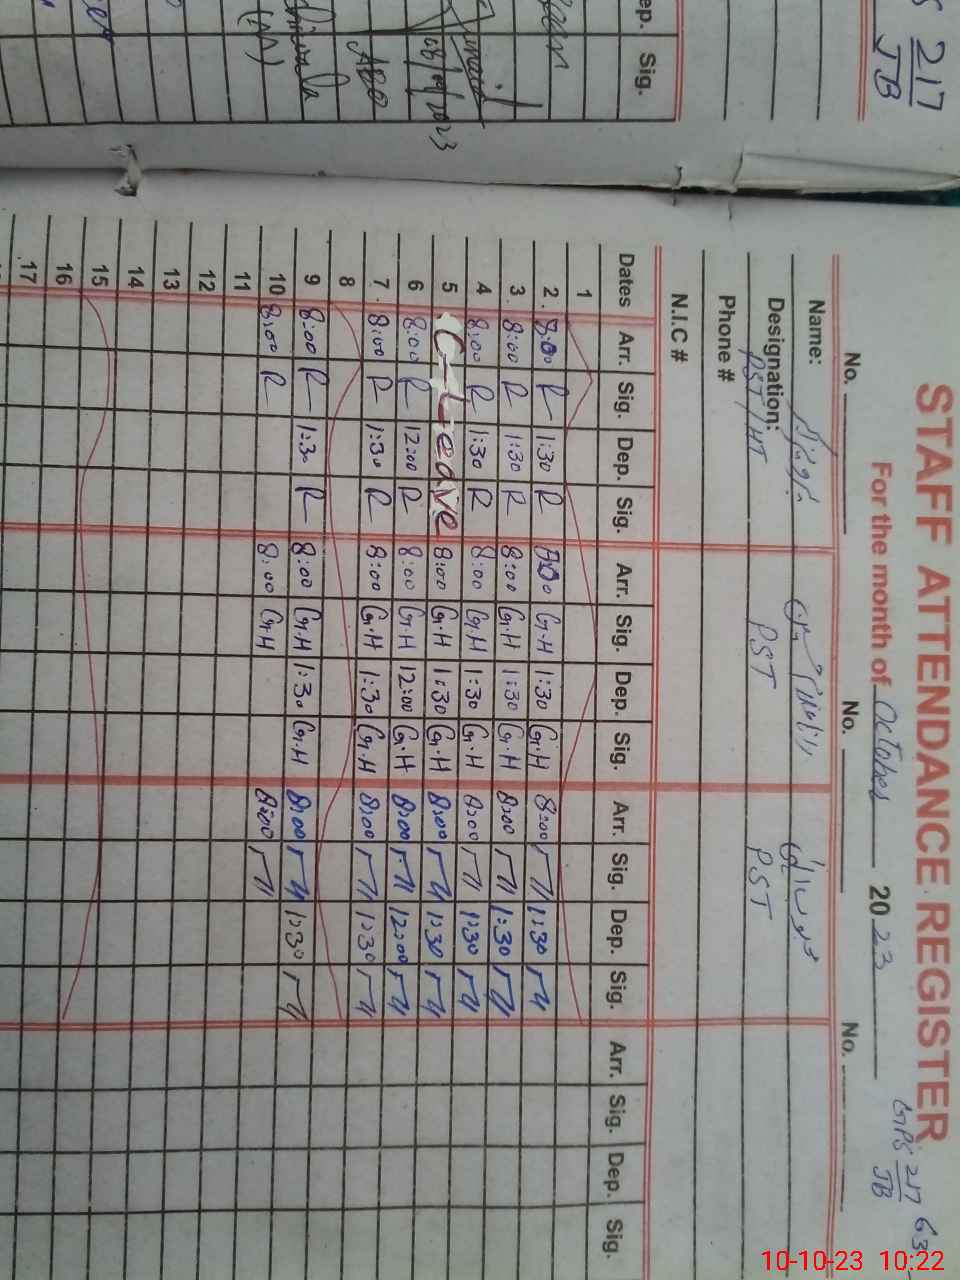 217
JB
ep. Sig.
08/09/2023
AEO
STAFF ATTENDANCE REGISTER
GPS 217 63
JB
For the month of October 2023
No. No. No.
Name:
Designation: PST/HT PST PST
Phone #
N.I.C #
Dates Arr. Sig. Dep. Sig. Arr. Sig. Dep. Sig. Arr. Sig. Dep. Sig. Arr. Sig. Dep. Sig.
1
2. 8:00 R 1:30 R G.H 1:30 G.H 8:00 1:30
3. 8:00 R 1:30 R 8:00 G.H 1:30 G.H 8:00 1:30
4 8:00 R 1:30 R 8:00 G.H 1:30 G.H 8:00 1:30
5 C-Leave 8:00 G.H 1:30 G.H 8:00 1:30
6 8:00 R 12:00 R 8:00 G.H 12:00 G.H 8:00 12:00
7. 8:00 R 1:30 R 8:00 G.H 1:30 G.H 8:00 1:30
8
9 8:00 R 1:30 R 8:00 G.H 1:30 G.H 8:00 1:30
10 8:00 R 8:00 G.H 8:00
11
12
13
14
15
16
17
10-10-23 10:22